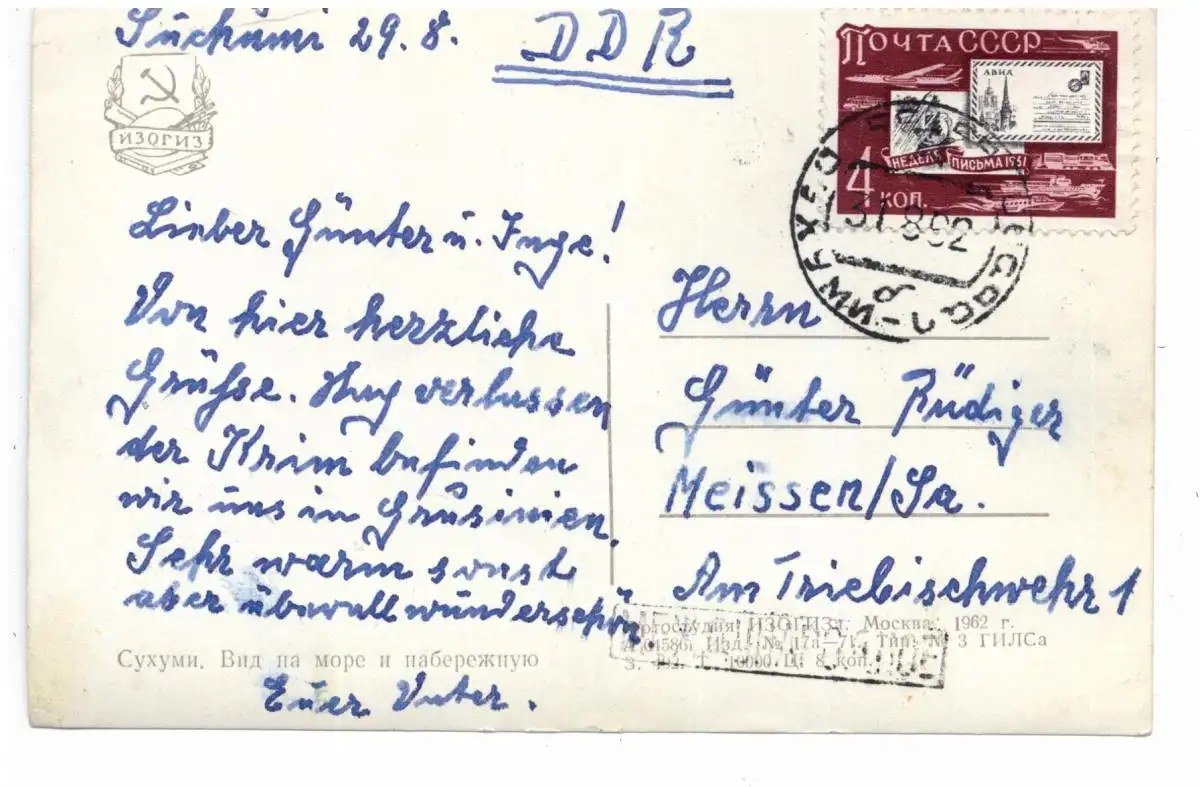 Suchumi 29.8. DDR
ПОЧТА СССР
АВИА
НЕДЕЛЯ ПИСЬМА 1961
4 КОП.
ИЗОГИЗ
31 8 62
Lieber Günter u. Inge!
Von hier herzliche
Grüsse. verlassen
der Krim befinden
wir uns in Grusinien.
Sehr warm sonst
aber überall wunderschön
Euer Vater.
Herrn
Günter Rüdiger
Meissen/Sa.
Am Triebischwehr 1
Сухуми. Вид на море и набережную
Фотостудия ИЗОГИЗа. Москва. 1962 г.
Изд. № 17а-71. Тип. № 3 ГИЛСа
10000 Ц. 8 коп.